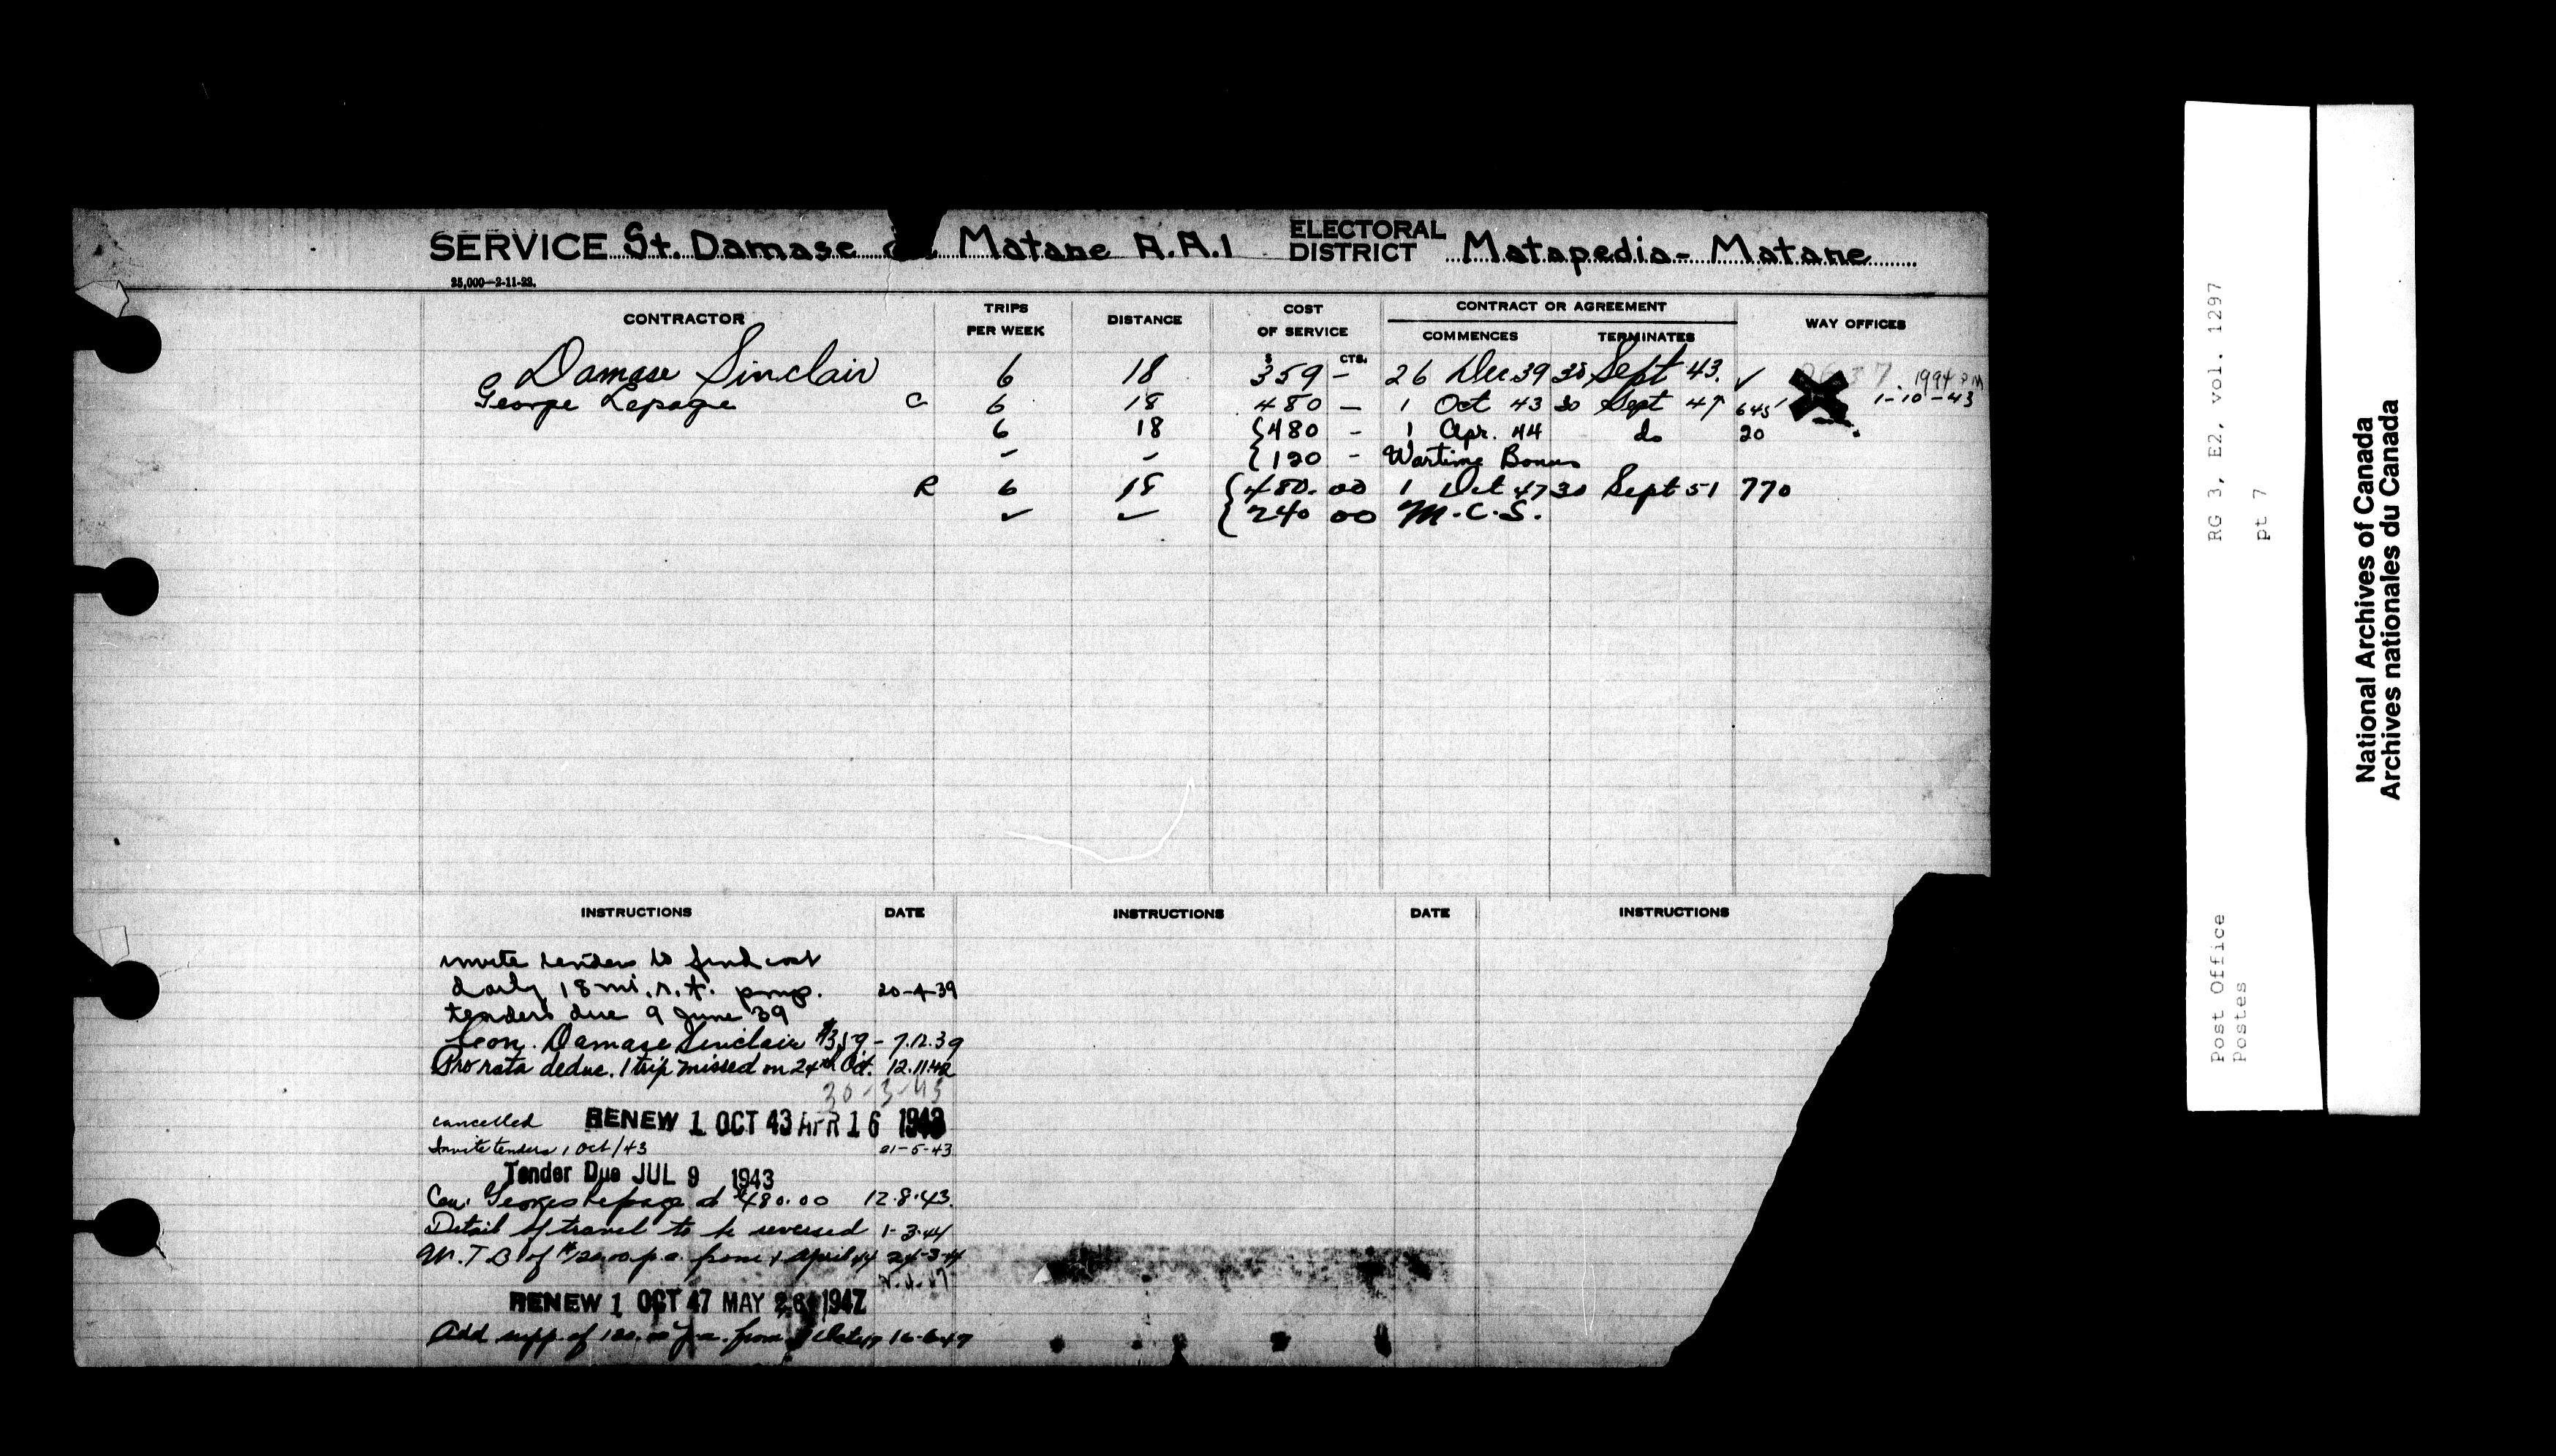 SERVICE St. Damase Matane R.R.1 ELECTORAL DISTRICT Matapedia-Matane
25,000-2-11-38.
CONTRACTOR TRIPS PER WEEK DISTANCE COST OF SERVICE CONTRACT OR AGREEMENT WAY OFFICES
COMMENCES TERMINATES
$ CTS.
Damase Sinclair 6 18 359 - 26 Dec 39 30 Sept 43. ✓ 1994 PM
George Lepage C 6 18 480 - 1 Oct 43 30 Sept 47 645' 1-10-43
6 18 {480 - 1 Apr. 44 do 20
- - {120 - Wartime Bonus
R 6 18 {480.00 1 Oct 47 30 Sept 51 770
✓ ✓ {240 00 M.C.S.
INSTRUCTIONS DATE INSTRUCTIONS DATE INSTRUCTIONS
invite tenders to find cost
daily 18 mi. r.t. prop. 20-4-39
tenders due 9 June 39
Con. Damase Sinclair $359 - 7.12.39
Pro rata deduc. 1 trip missed on 24th Oct. 12.11.42
30-3-43
cancelled RENEW 1 OCT 43 APR 16 1943
Invite tenders 1 Oct/43 21-5-43
Tender Due JUL 9 1943
Con. Georges Lepage at $480.00 12.8.43.
Detail of travel to be reversed 1-3-44
W.T.B of $120.00 p.a. from 1 April 44 24-3-44
RENEW 1 OCT 47 MAY 26 1947
Add supp. of 120.00 p.a. from 1 Oct 47 16-6-47
RG 3, E2, vol. 1297
pt 7
Post Office
Postes
National Archives of Canada
Archives nationales du Canada